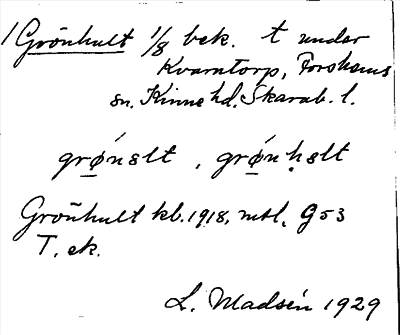 1 Grönhult 1/8 bek. t under
Kvarntorp, Forshems
sn. Kinne hd. Skarab. l.
grǿnølt, grǿnhølt
Grönhult kb. 1918, mtl. G 53
T. ek.
L. Madsén 1929